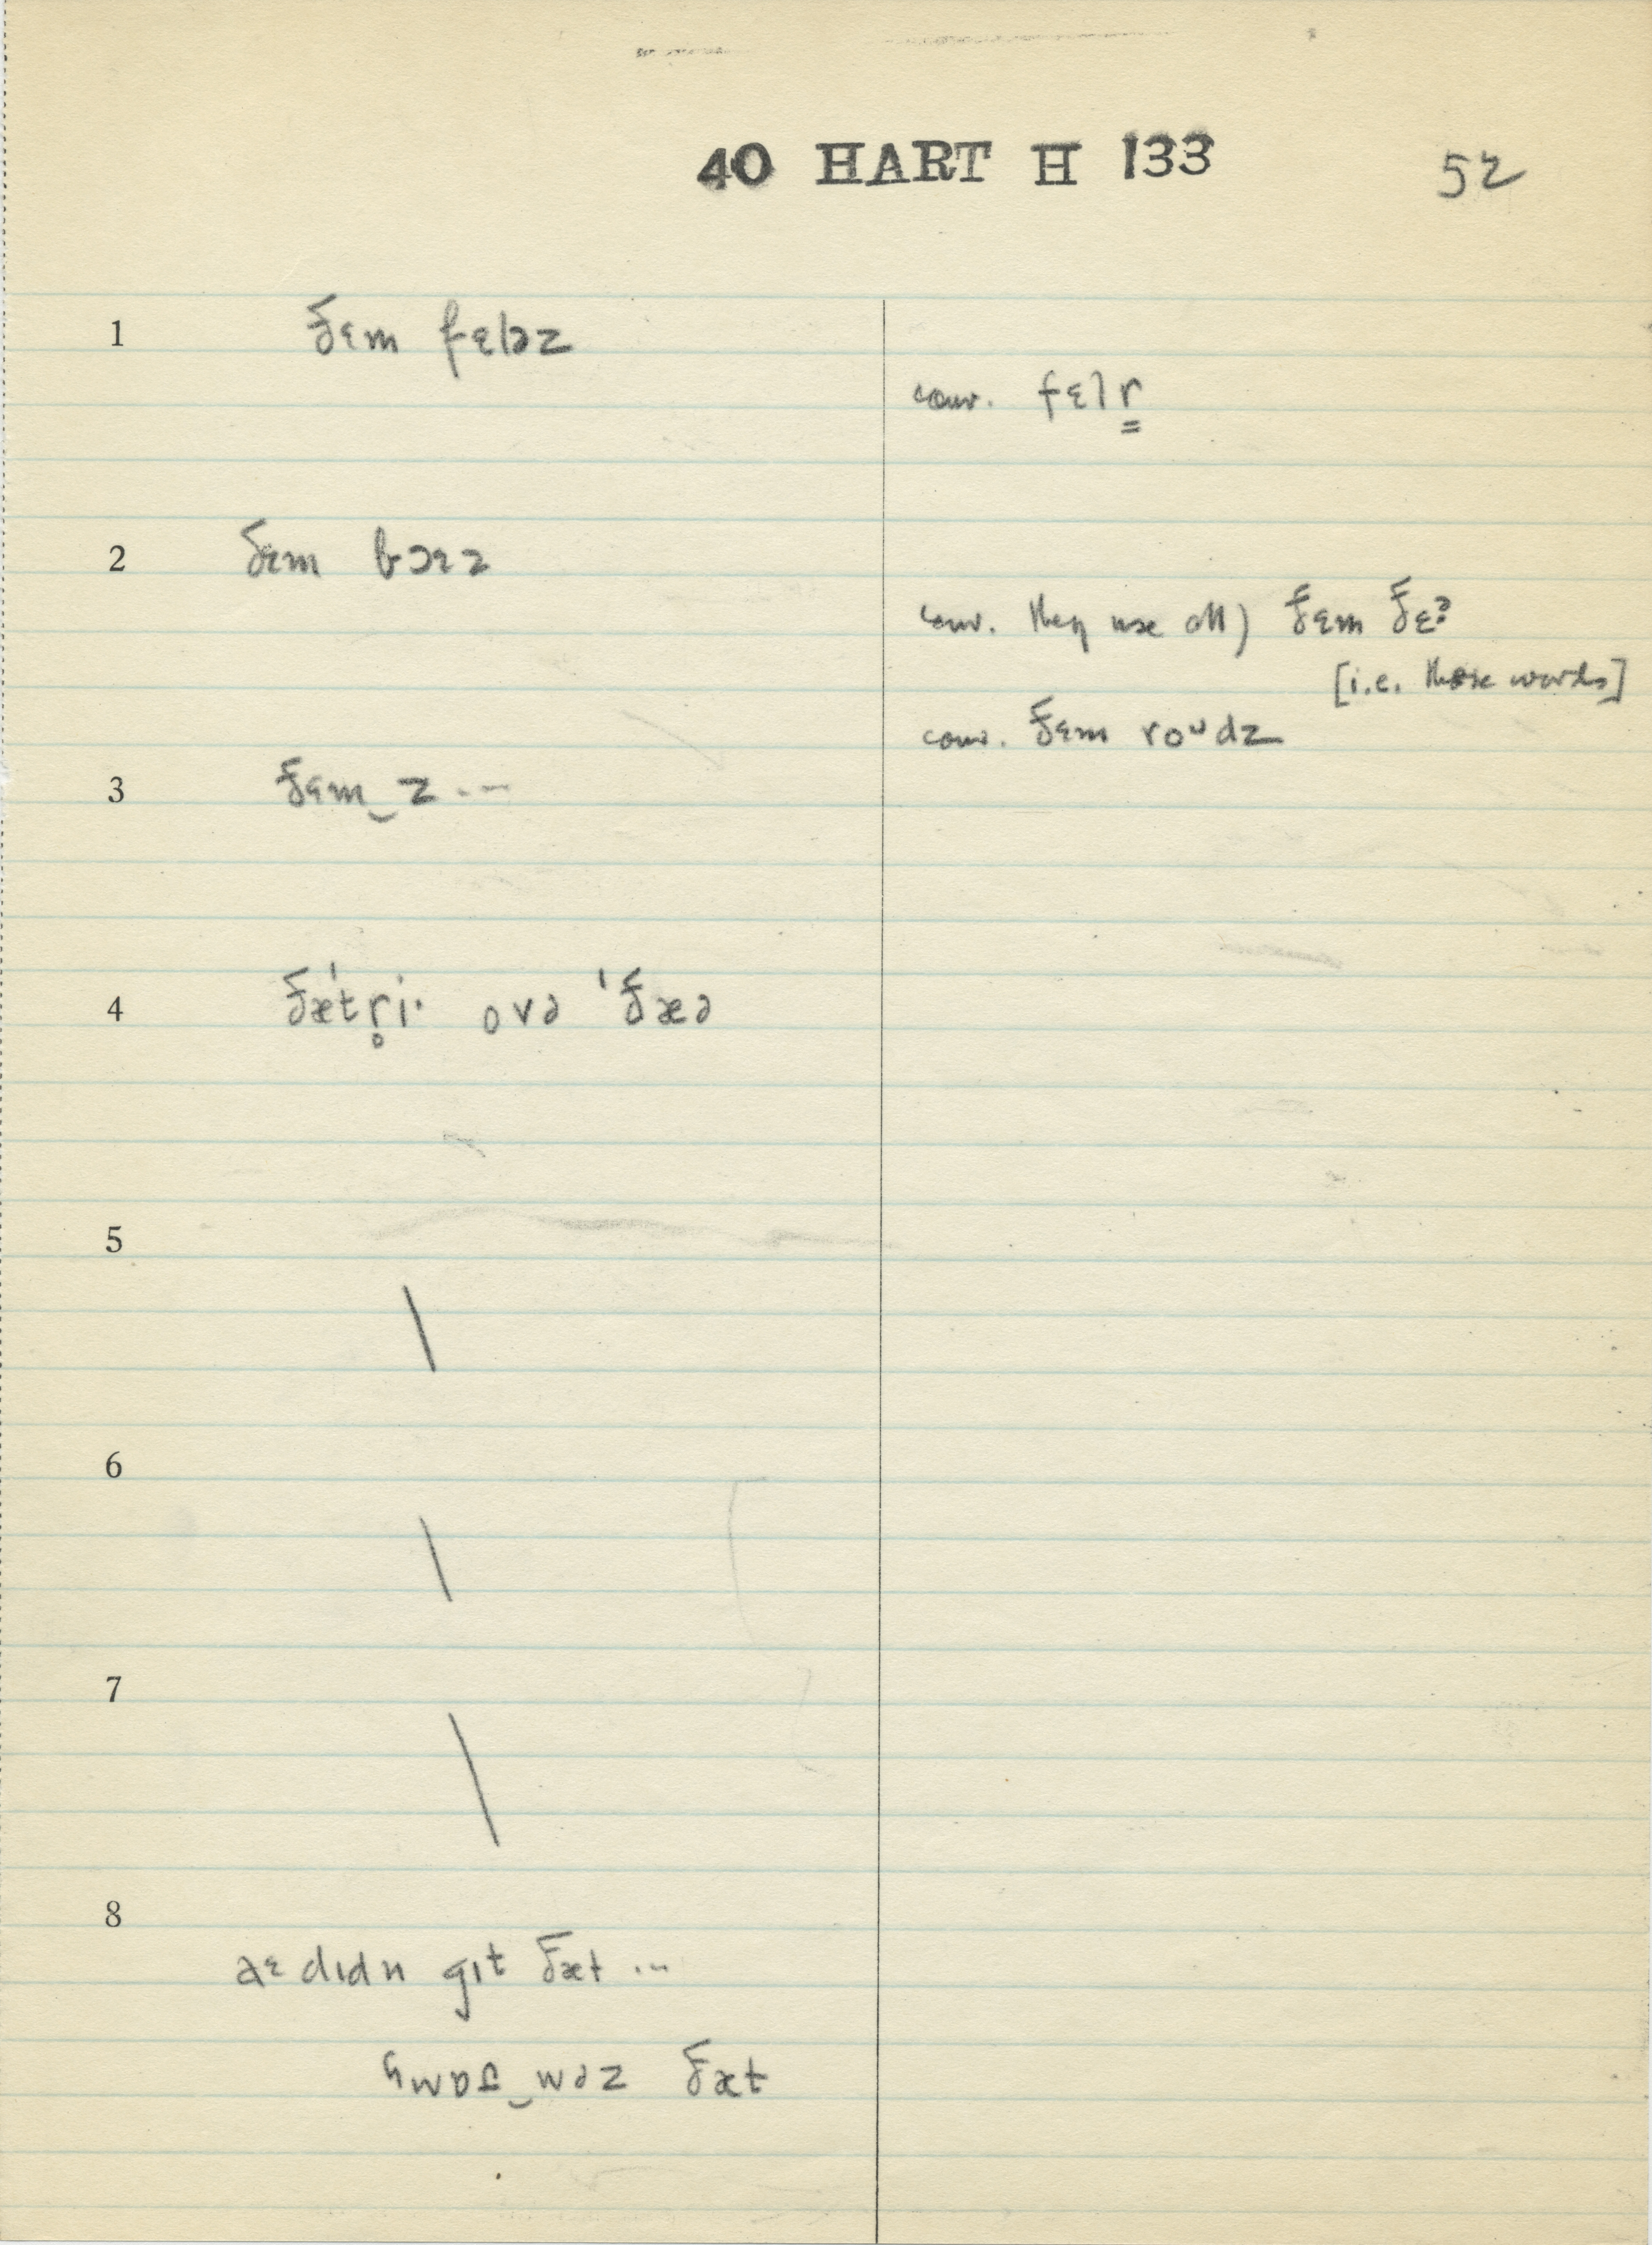 40 HART H 133 52
1 ðɛm fɛləz
conv. fɛlr
2 ðɛm bɔɛz
conv. they use all) ðɛm ðɛ?
[i.e. those words]
conv. ðɛm roᴜdz
3 ðɛm‿z ...
4 ðæ'tr̥i· ovə 'ðæə
5
6
7
8
aɛ dɪdn gɪt ðæt ...
ðæt